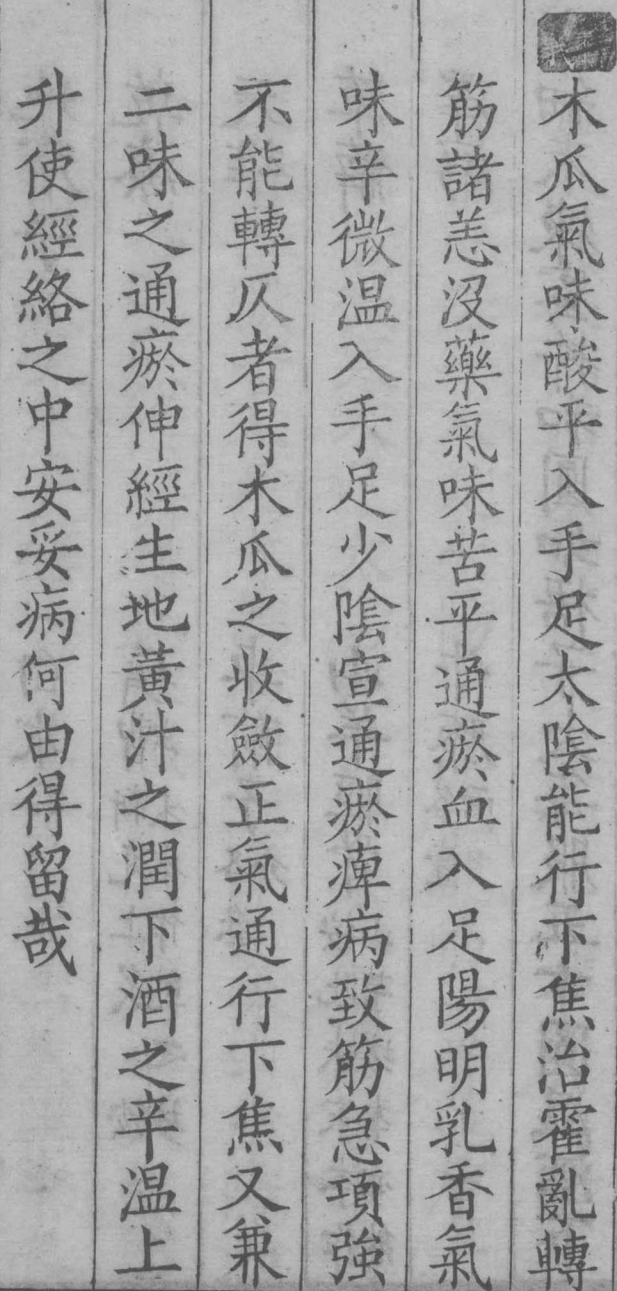 木瓜氣味酸平入手足太陰能行下焦治霍亂轉
筋諸恙沒藥氣味苦平通瘀血入足陽明乳香氣
味辛微温入手足少陰宣通瘀痺病致筋急項強
不能轉仄者得木瓜之收斂正氣通行下焦又兼
二味之通瘀伸經生地黃汁之潤下酒之辛温上
升使經絡之中安妥病何由得留哉